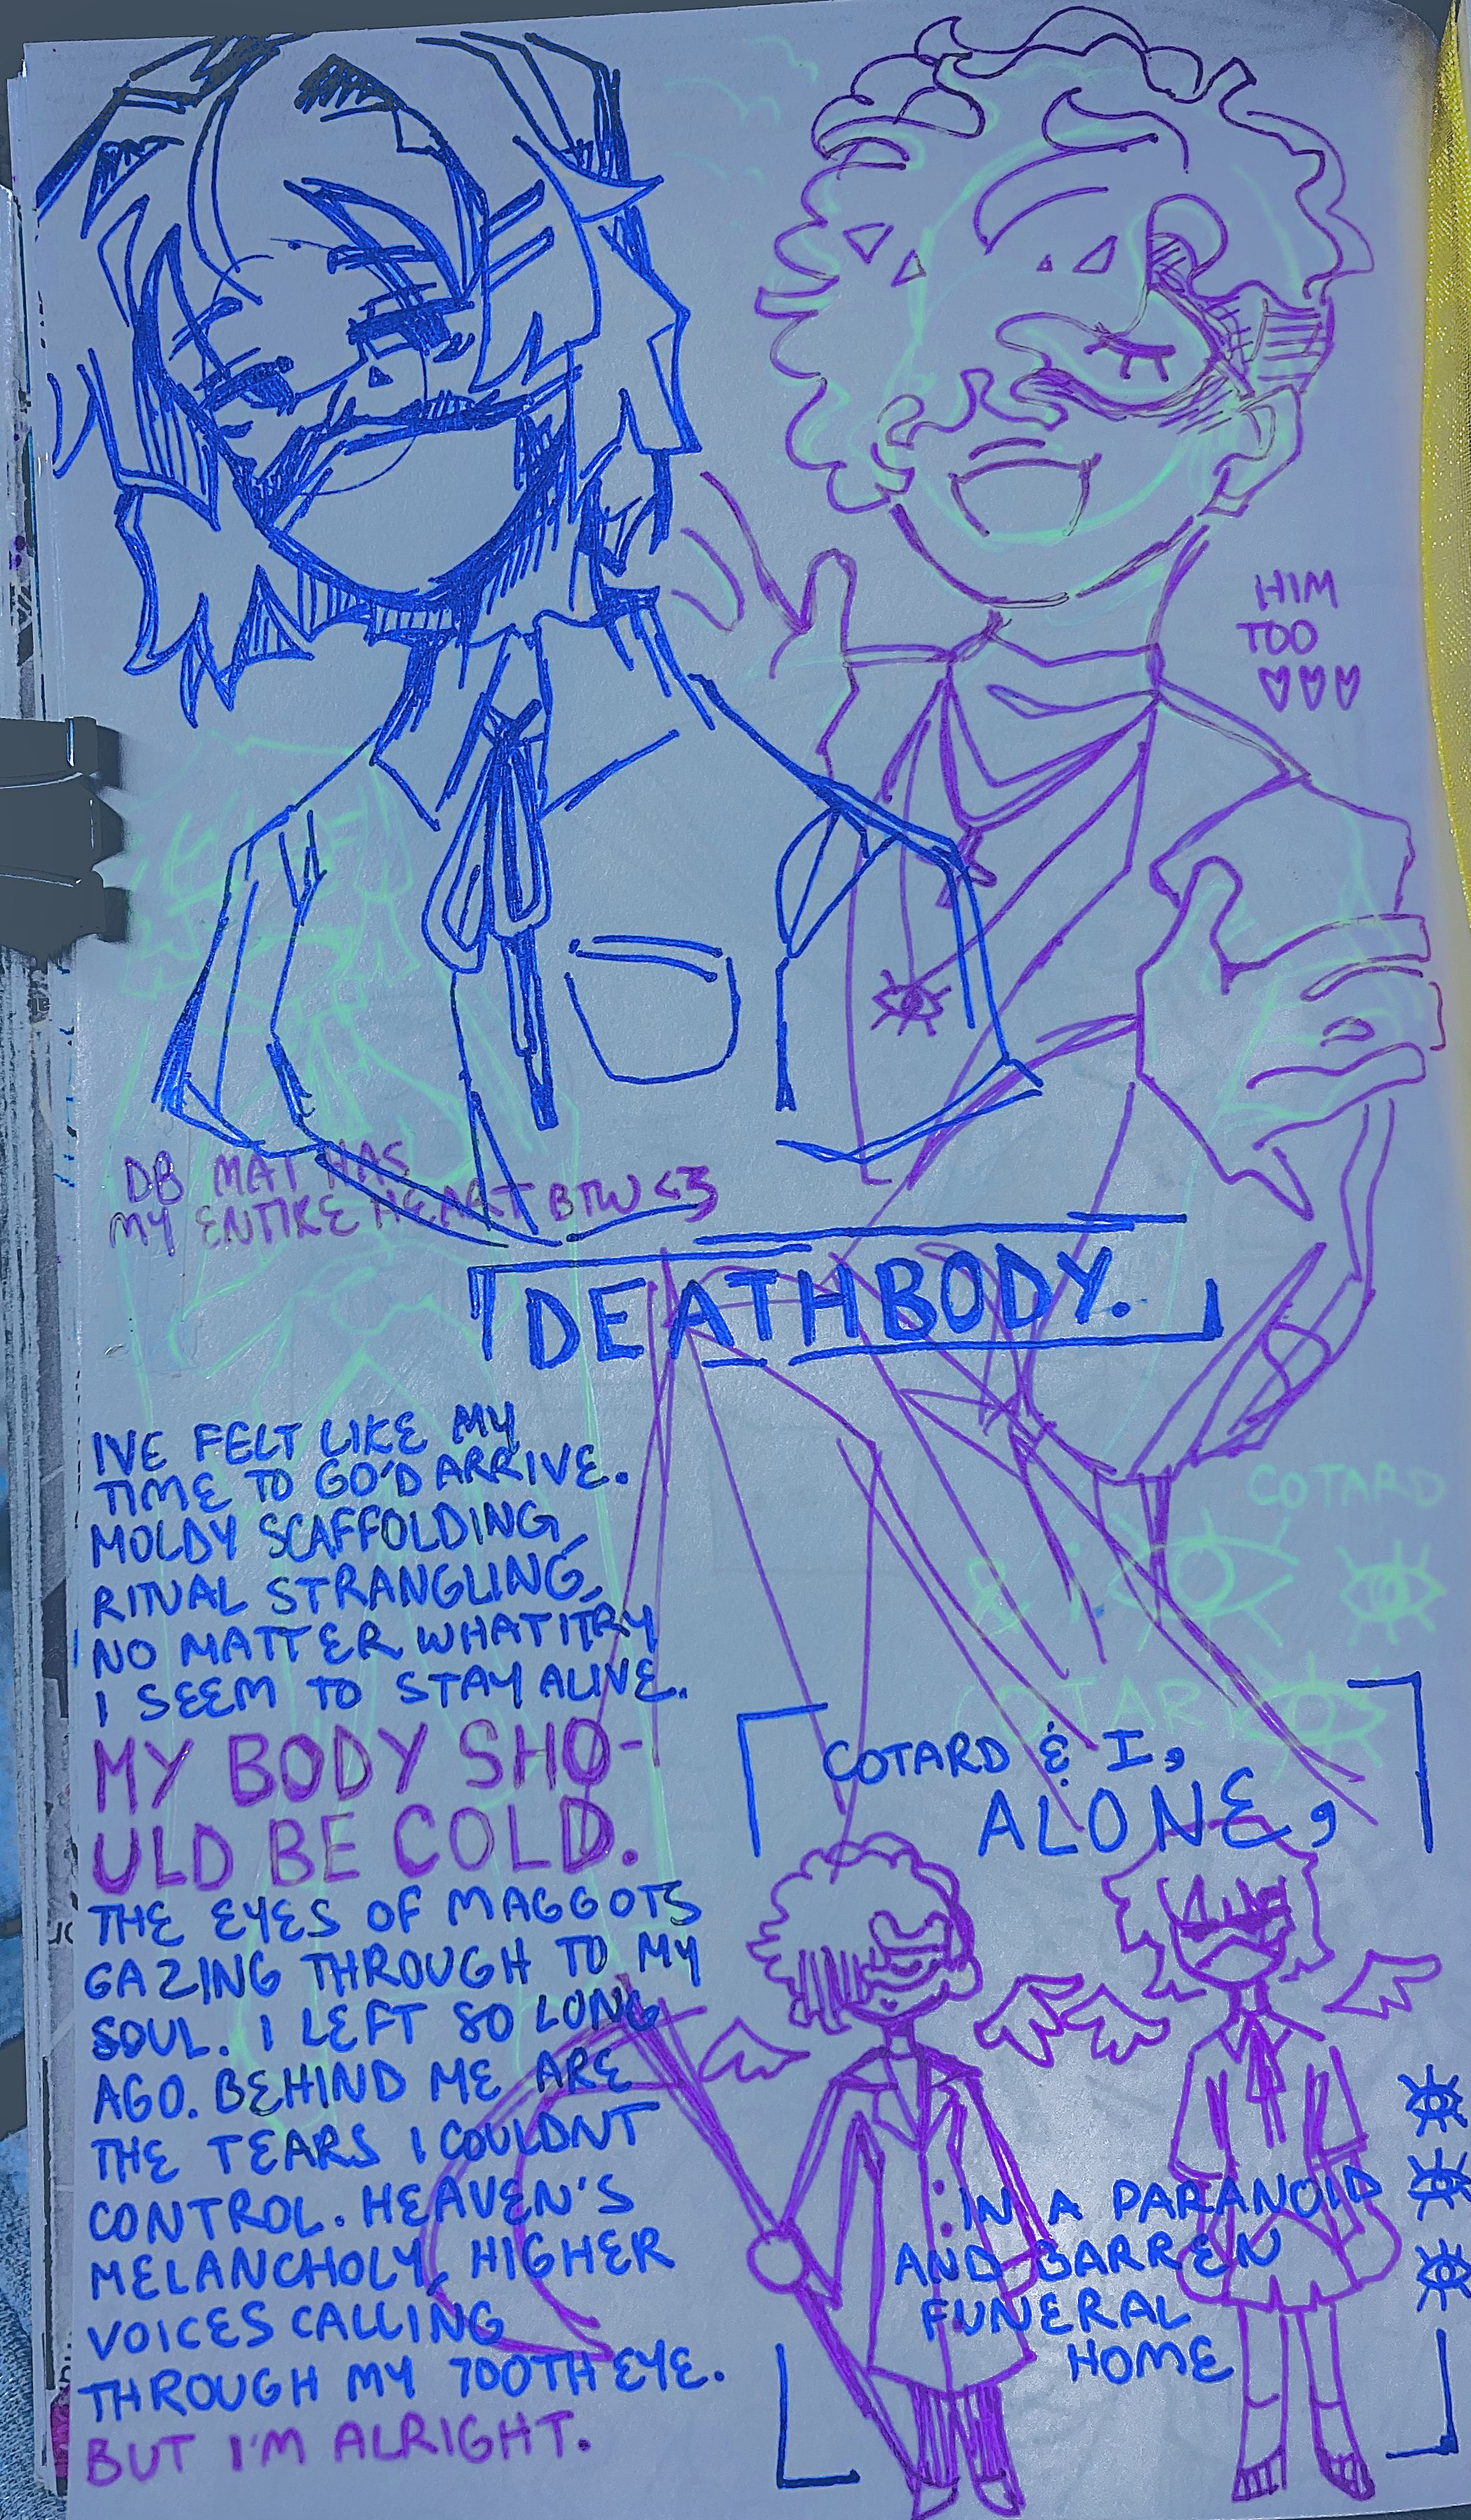 HIM
TOO
DB MAT HAS
MY ENTIRE HEART BTW <3
DEATHBODY.
IVE FELT LIKE MY
TIME TO GO'D ARRIVE.
MOLDY SCAFFOLDING,
RITUAL STRANGLING,
NO MATTER WHAT I TRY
I SEEM TO STAY ALIVE.
MY BODY SHO-
ULD BE COLD.
THE EYES OF MAGGOTS
GAZING THROUGH TO MY
SOUL. I LEFT SO LONG
AGO. BEHIND ME ARE
THE TEARS I COULDNT
CONTROL. HEAVEN'S
MELANCHOLY, HIGHER
VOICES CALLING
THROUGH MY TOOTH EYE.
BUT I'M ALRIGHT.
COTARD
&
COTARD
COTARD & I,
ALONE,
IN A PARANOID
AND BARREN
FUNERAL
HOME